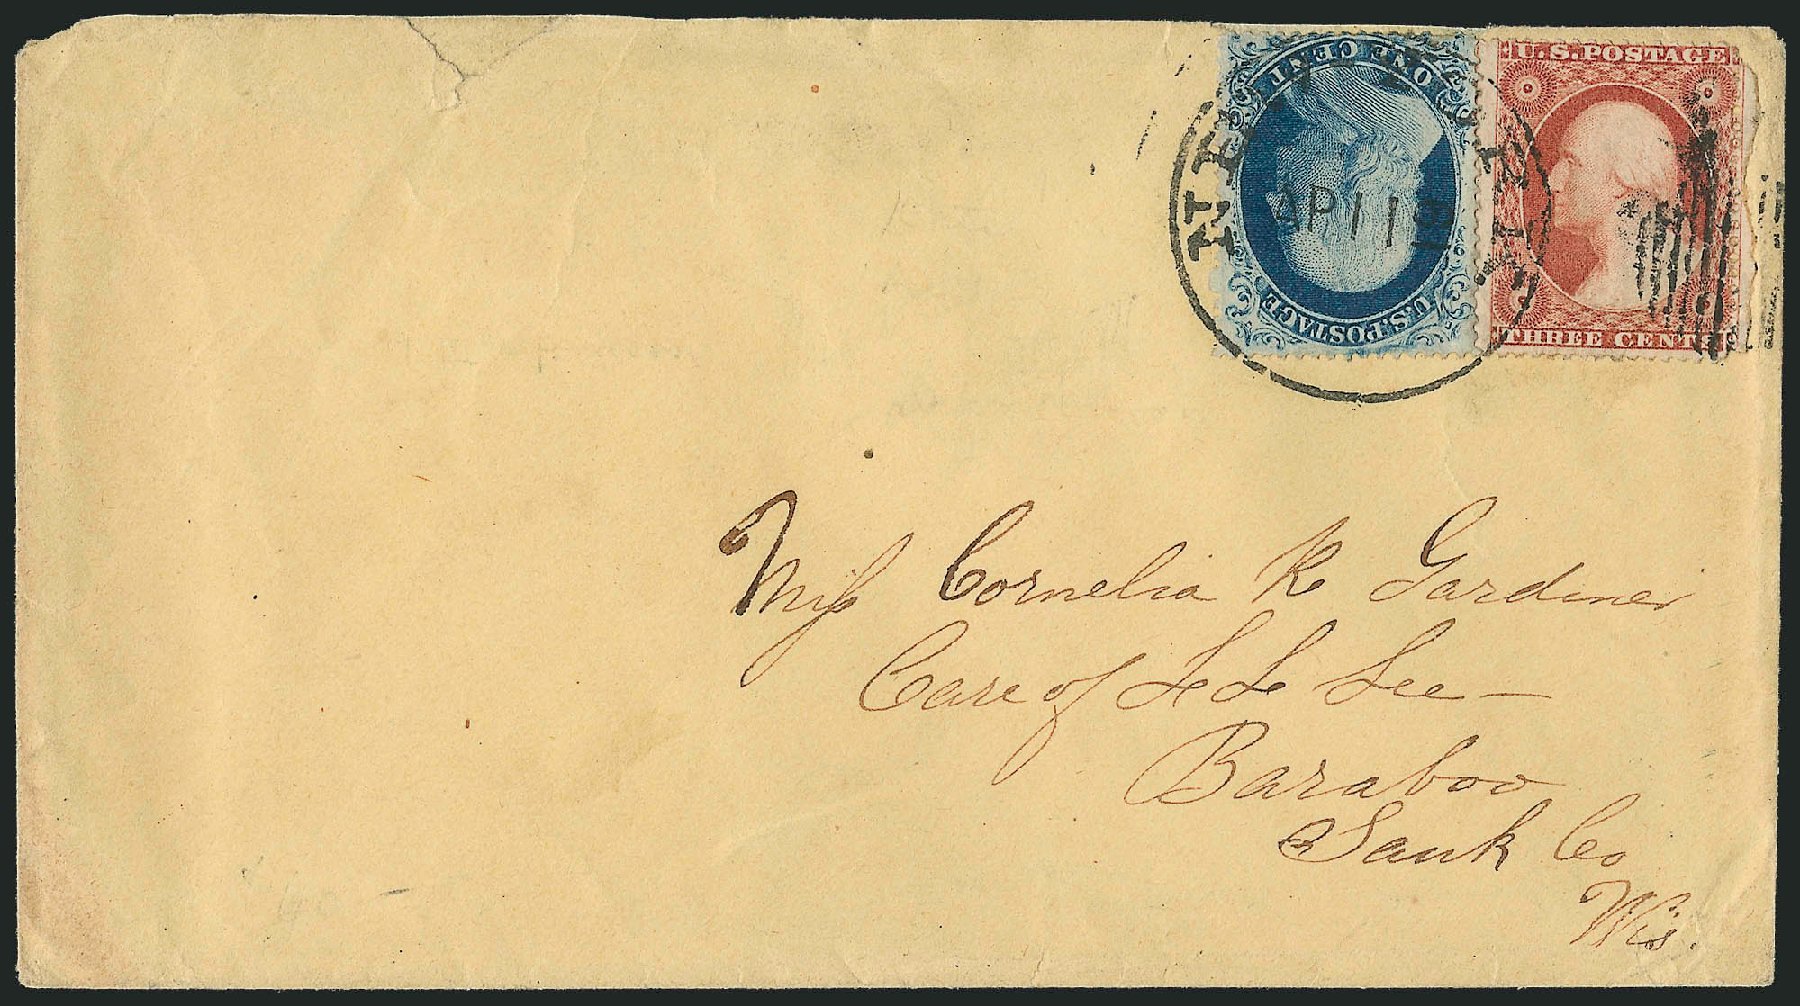 ONE CENT
U.S. POSTAGE
AP 11
U.S. POSTAGE
THREE CENTS
Miſs Cornelia K Gardiner
Care of L L Lee —
Baraboo
Sauk Co
Wis.